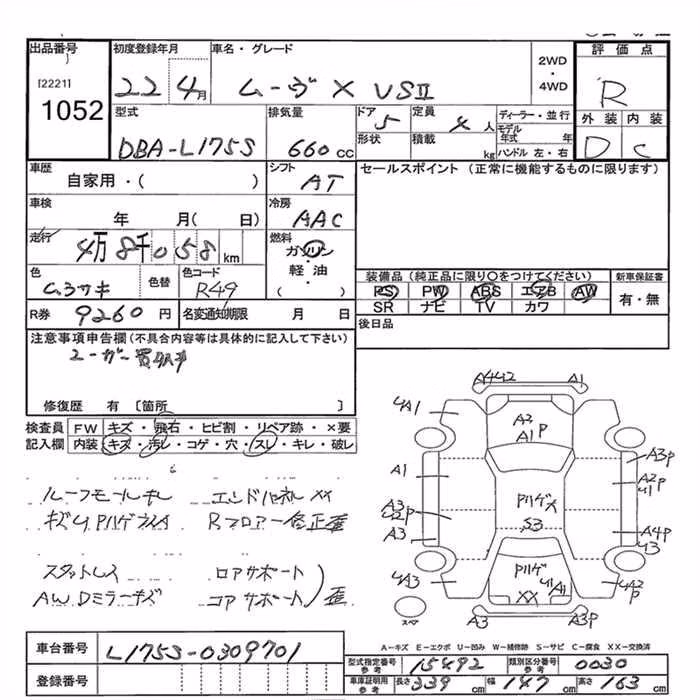 出品番号 初度登録年月 車名・グレード 2WD・4WD 評価点
[2221]
1052 22 4月 ムーヴ X VSII R
型式 排気量 ドア 定員 ディーラー・並行 外装 内装
DBA-L175S 660cc 5 4人 モデル年式 年 D C
形状 積載 kg ハンドル 左・右
車歴 シフト セールスポイント（正常に機能するものに限ります）
自家用・( ) AT
車検 冷房
年 月( 日) AAC
走行 燃料
4万8千058km ガソリン
軽油
・( )
色 色替 色コード 装備品（純正品に限り○をつけてください） 新車保証書
ムラサキ R49 PS PW ABS エアB AW 有・無
SR ナビ TV カワ
R券 9260円 名変通知期限 月 日 後日品
注意事項申告欄（不具合内容等は具体的に記入して下さい）
ユーザー買取車
修復歴 有 〔箇所 〕
検査員 FW キズ・飛石・ヒビ割・リペア跡・×要
記入欄 内装 キズ・汚レ・コゲ・穴・スレ・キレ・破レ
ルーフモールキレ エンドパネルXX
キズUPハゲ Rフロアー修正歪
スタットレス ロアサポート
AWDミラーキズ コアサポート 歪
A4U2 A1
UA1
A2
A1 P
A1 A3P
A2P
U1
Pハゲ
A3
U2P
S3
A3 A4P
U3
Pハゲ
U1 A1
UA3 XX UA2P
A3 A3P
スペア
A-キズ E-エクボ U-凹み W-補修跡 S-サビ C-腐食 XX-交換済
車台番号 L175S-0309701
型式指定番号 参考 15492 類別区分番号 参考 0030
登録番号
車庫証明用 参考 長さ 339cm 幅 147cm 高さ 163cm